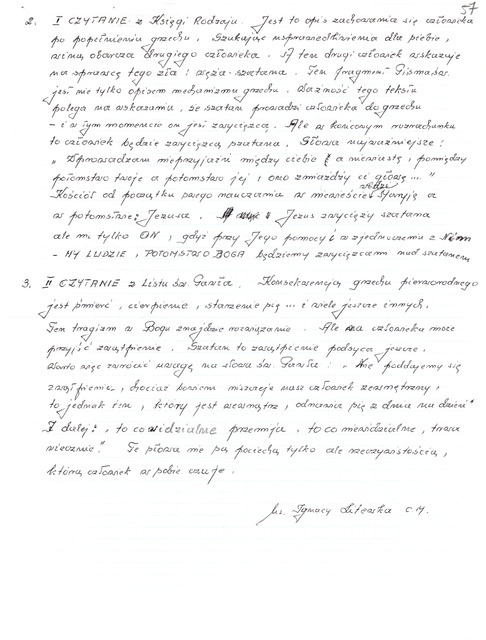 57
2. I CZYTANIE z Księgi Rodzaju. Jest to opis zachowania się człowieka
po popełnieniu grzechu. Szukając usprawiedliwienia dla siebie,
winą obarcza drugiego człowieka. A ten drugi człowiek wskazuje
na sprawcę tego zła: węża-szatana. Ten fragment Pisma Św.
jest nie tylko opisem mechanizmu grzechu. Ważność tego tekstu
polega na wskazaniu, że szatan prowadzi człowieka do grzechu
- i w tym momencie on jest zwycięzcą. Ale w końcowym rozrachunku
to człowiek będzie zwycięzcą szatana. Słowa najważniejsze:
"Wprowadzam nieprzyjaźń między ciebie a niewiastę, pomiędzy
potomstwo twoje a potomstwo jej: ono zmiażdży ci głowę..."
Kościół od początku swego nauczania w niewieście widzi Maryję a
w potomstwie: Jezusa. Jezus zwycięży szatana
ale nie tylko ON, gdyż przy Jego pomocy i w zjednoczeniu z Nim
- MY LUDZIE, POTOMSTWO BOGA będziemy zwycięzcami nad szatanem
3. II CZYTANIE z Listu św. Pawła. Konsekwencją grzechu pierworodnego
jest śmierć, cierpienie, starzenie się... i wiele jeszcze innych.
Ten tragizm w Bogu znajdzie rozwiązanie. Ale na człowieka może
przyjść zwątpienie. Szatan to zwątpienie podsyca jeszcze.
Warto więc zwrócić uwagę na słowa św. Pawła: "Nie poddajemy się
zwątpieniu, chociaż bowiem niszczeje nasz człowiek zewnętrzny,
to jednak ten, który jest wewnątrz, odnawia się z dnia na dzień"
I dalej: "to co widzialne przemija, to co niewidzialne, trwa
wiecznie." Te słowa nie są pociechą tylko ale rzeczywistością,
którą człowiek w sobie czuje.
ks. Ignacy
C.M.